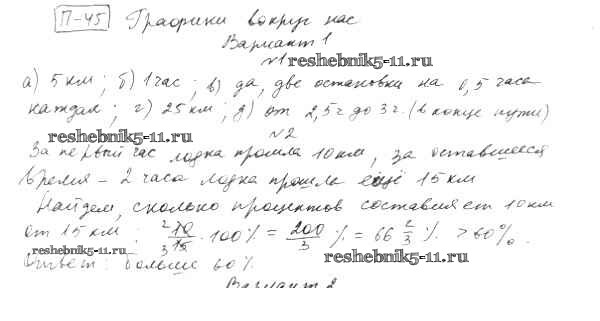 П-45 Графики вокруг нас
Вариант 1
№1 reshebnik5-11.ru
а) 5 км; б) 1 час; в) да, две остановки на 0,5 часа
каждая; г) 25 км; д) от 2,5 ч до 3 ч. (в конце пути)
reshebnik5-11.ru №2
За первый час лодка прошла 10 км, за оставшееся
время - 2 часа лодка прошла ещё 15 км
Найдем, сколько процентов составляет 10 км
от 15 км; 2 10/15 3 · 100% = 200/3 % = 66 2/3 % > 60%.
reshebnik5-11.ru reshebnik5-11.ru
Ответ: больше 60%.
Вариант 2